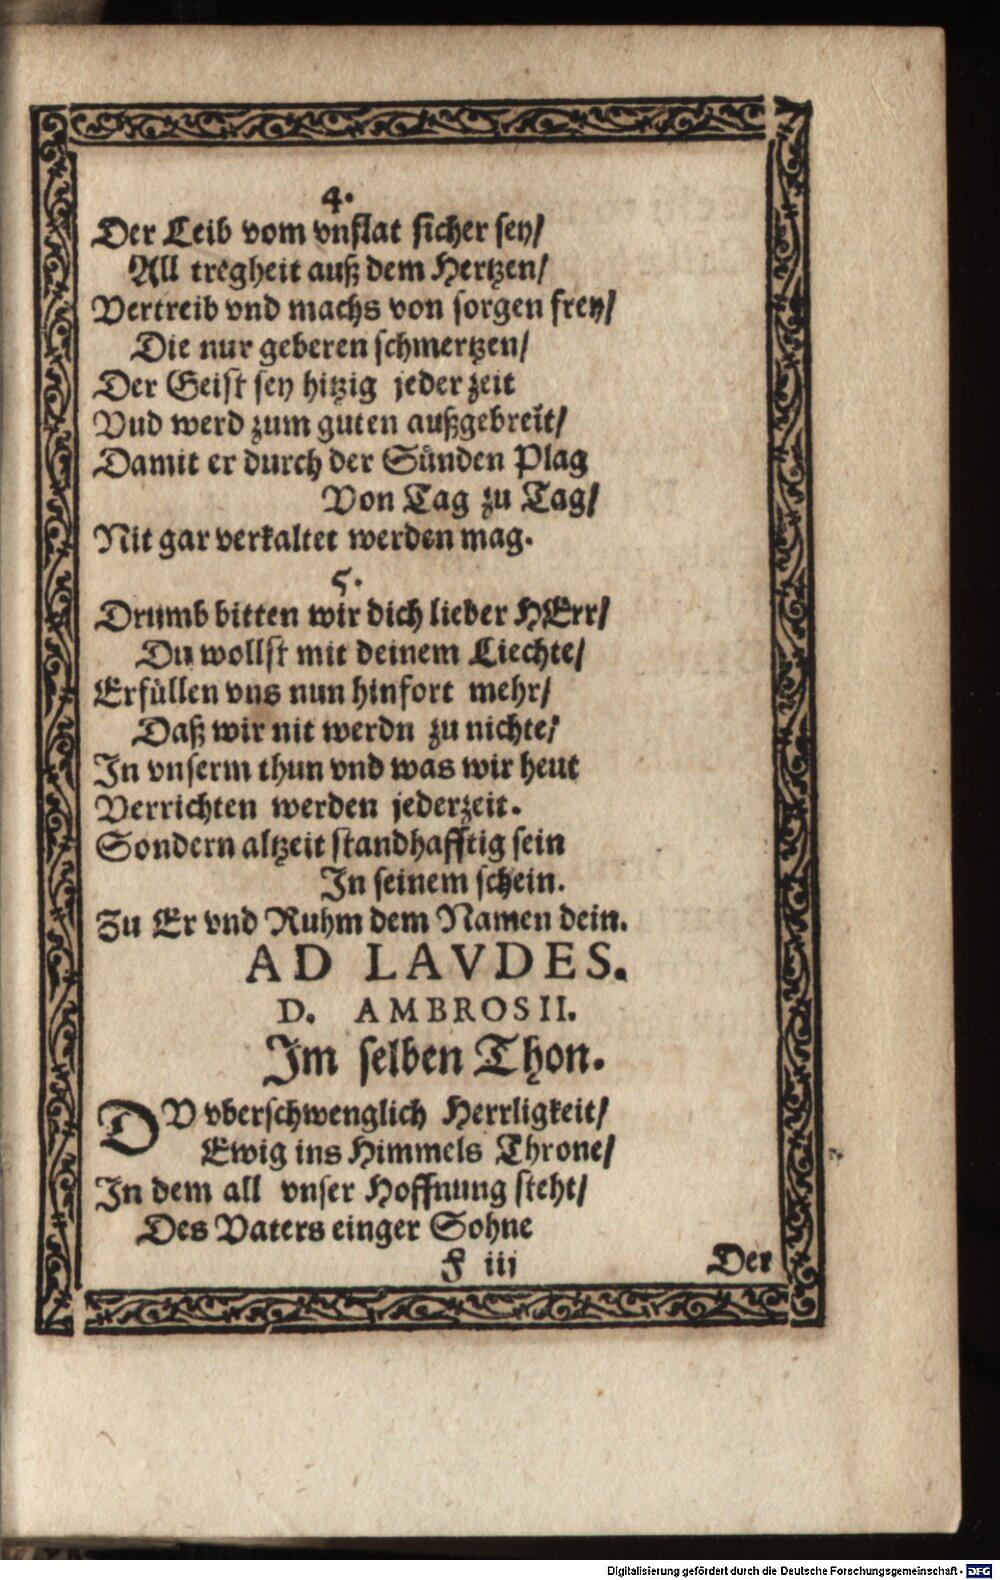 4.
Der Leib vom vnflat sicher sey/
All tregheit auß dem Hertzen/
Vertreib vnd machs von sorgen frey/
Die nur geberen schmertzen/
Der Geist sey hitzig jeder zeit
Vud werd zum guten außgebreit/
Damit er durch der Sünden Plag
Von Tag zu Tag/
Nit gar verkaltet werden mag.
5.
Drumb bitten wir dich lieber HErr/
Du wollst mit deinem Liechte/
Erfüllen vns nun hinfort mehr/
Daß wir nit werdn zu nichte/
In vnserm thun vnd was wir heut
Verrichten werden jederzeit.
Sondern altzeit standhafftig sein
In seinem schein.
Zu Er vnd Ruhm dem Namen dein.
AD LAVDES.
D. AMBROSII.
Im selben Thon.
DV vberschwenglich Herrligkeit/
Ewig ins Himmels Throne/
In dem all vnser Hoffnung steht/
Des Vaters einger Sohne
F iii Der
Digitalisierung gefördert durch die Deutsche Forschungsgemeinschaft - DFG